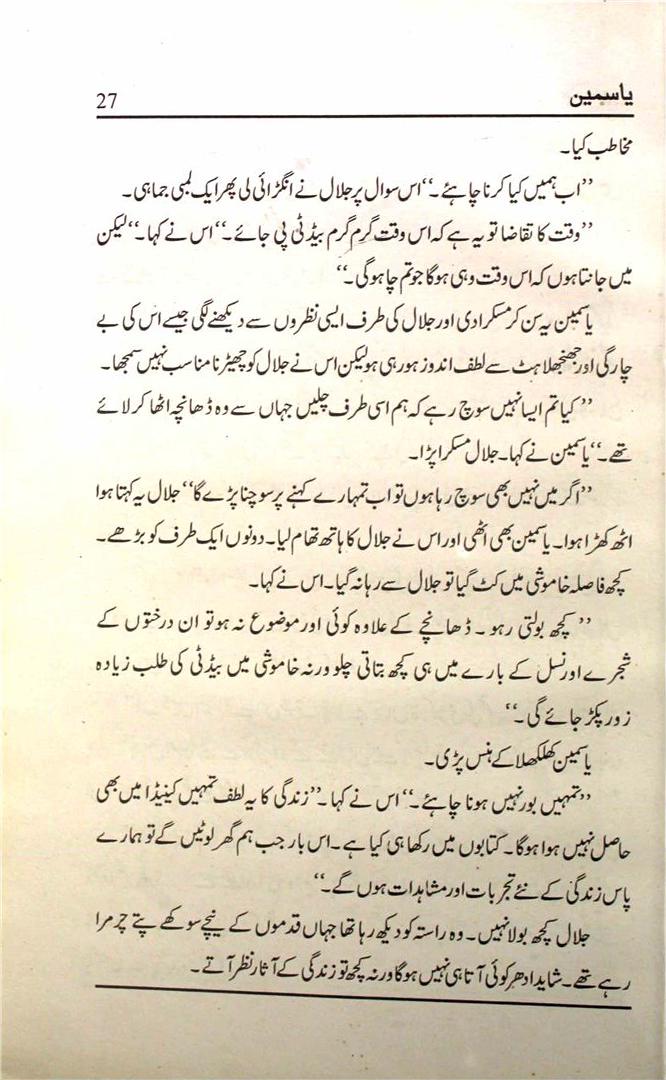 یاسمین
27
مخاطب کیا۔
’’اب ہمیں کیا کرنا چاہئے۔‘‘ اس سوال پر جلال نے انگڑائی لی پھر ایک لمبی جماہی۔
’’وقت کا تقاضا تو یہ ہے کہ اس وقت گرم گرم بیڈٹی پی جائے۔‘‘ اس نے کہا۔‘‘ لیکن
میں جانتا ہوں کہ اس وقت وہی ہوگا جو تم چاہوگی۔‘‘
یاسمین یہ سن کر مسکرا دی اور جلال کی طرف ایسی نظروں سے دیکھنے لگی جیسے اس کی بے
چارگی اور جھنجھلاہٹ سے لطف اندوز ہو رہی ہو لیکن اس نے جلال کو چھیڑنا مناسب نہیں سمجھا۔
’’کیا تم ایسا نہیں سوچ رہے کہ ہم اسی طرف چلیں جہاں سے وہ ڈھانچہ اٹھا کر لائے
تھے۔‘‘ یاسمین نے کہا۔ جلال مسکرا پڑا۔
’’اگر میں نہیں بھی سوچ رہا ہوں تو اب تمہارے کہنے پر سوچنا پڑے گا‘‘ جلال یہ کہتا ہوا
اٹھ کھڑا ہوا۔ یاسمین بھی اٹھی اور اس نے جلال کا ہاتھ تھام لیا۔ دونوں ایک طرف کو بڑھے۔
کچھ فاصلہ خاموشی میں کٹ گیا تو جلال سے رہا نہ گیا۔ اس نے کہا۔
’’کچھ بولتی رہو ۔ ڈھانچے کے علاوہ کوئی اور موضوع نہ ہو تو ان درختوں کے
شجرے اور نسل کے بارے میں ہی کچھ بتاتی چلو ورنہ خاموشی میں بیڈٹی کی طلب زیادہ
زور پکڑ جائے گی۔‘‘
یاسمین کھلکھلا کے ہنس پڑی۔
’’تمہیں بور نہیں ہونا چاہئے۔‘‘ اس نے کہا۔’’ زندگی کا یہ لطف تمہیں کینیڈا میں بھی
حاصل نہیں ہوا ہوگا۔ کتابوں میں رکھا ہی کیا ہے۔ اس بار جب ہم گھر لوٹیں گے تو ہمارے
پاس زندگی کے نئے تجربات اور مشاہدات ہوں گے۔‘‘
جلال کچھ بولا نہیں۔ وہ راستہ کو دیکھ رہا تھا جہاں قدموں کے نیچے سوکھے پتے چرمرا
رہے تھے۔ شاید ادھر کوئی آتا ہی نہیں ہوگا ورنہ کچھ تو زندگی کے آثار نظر آتے۔